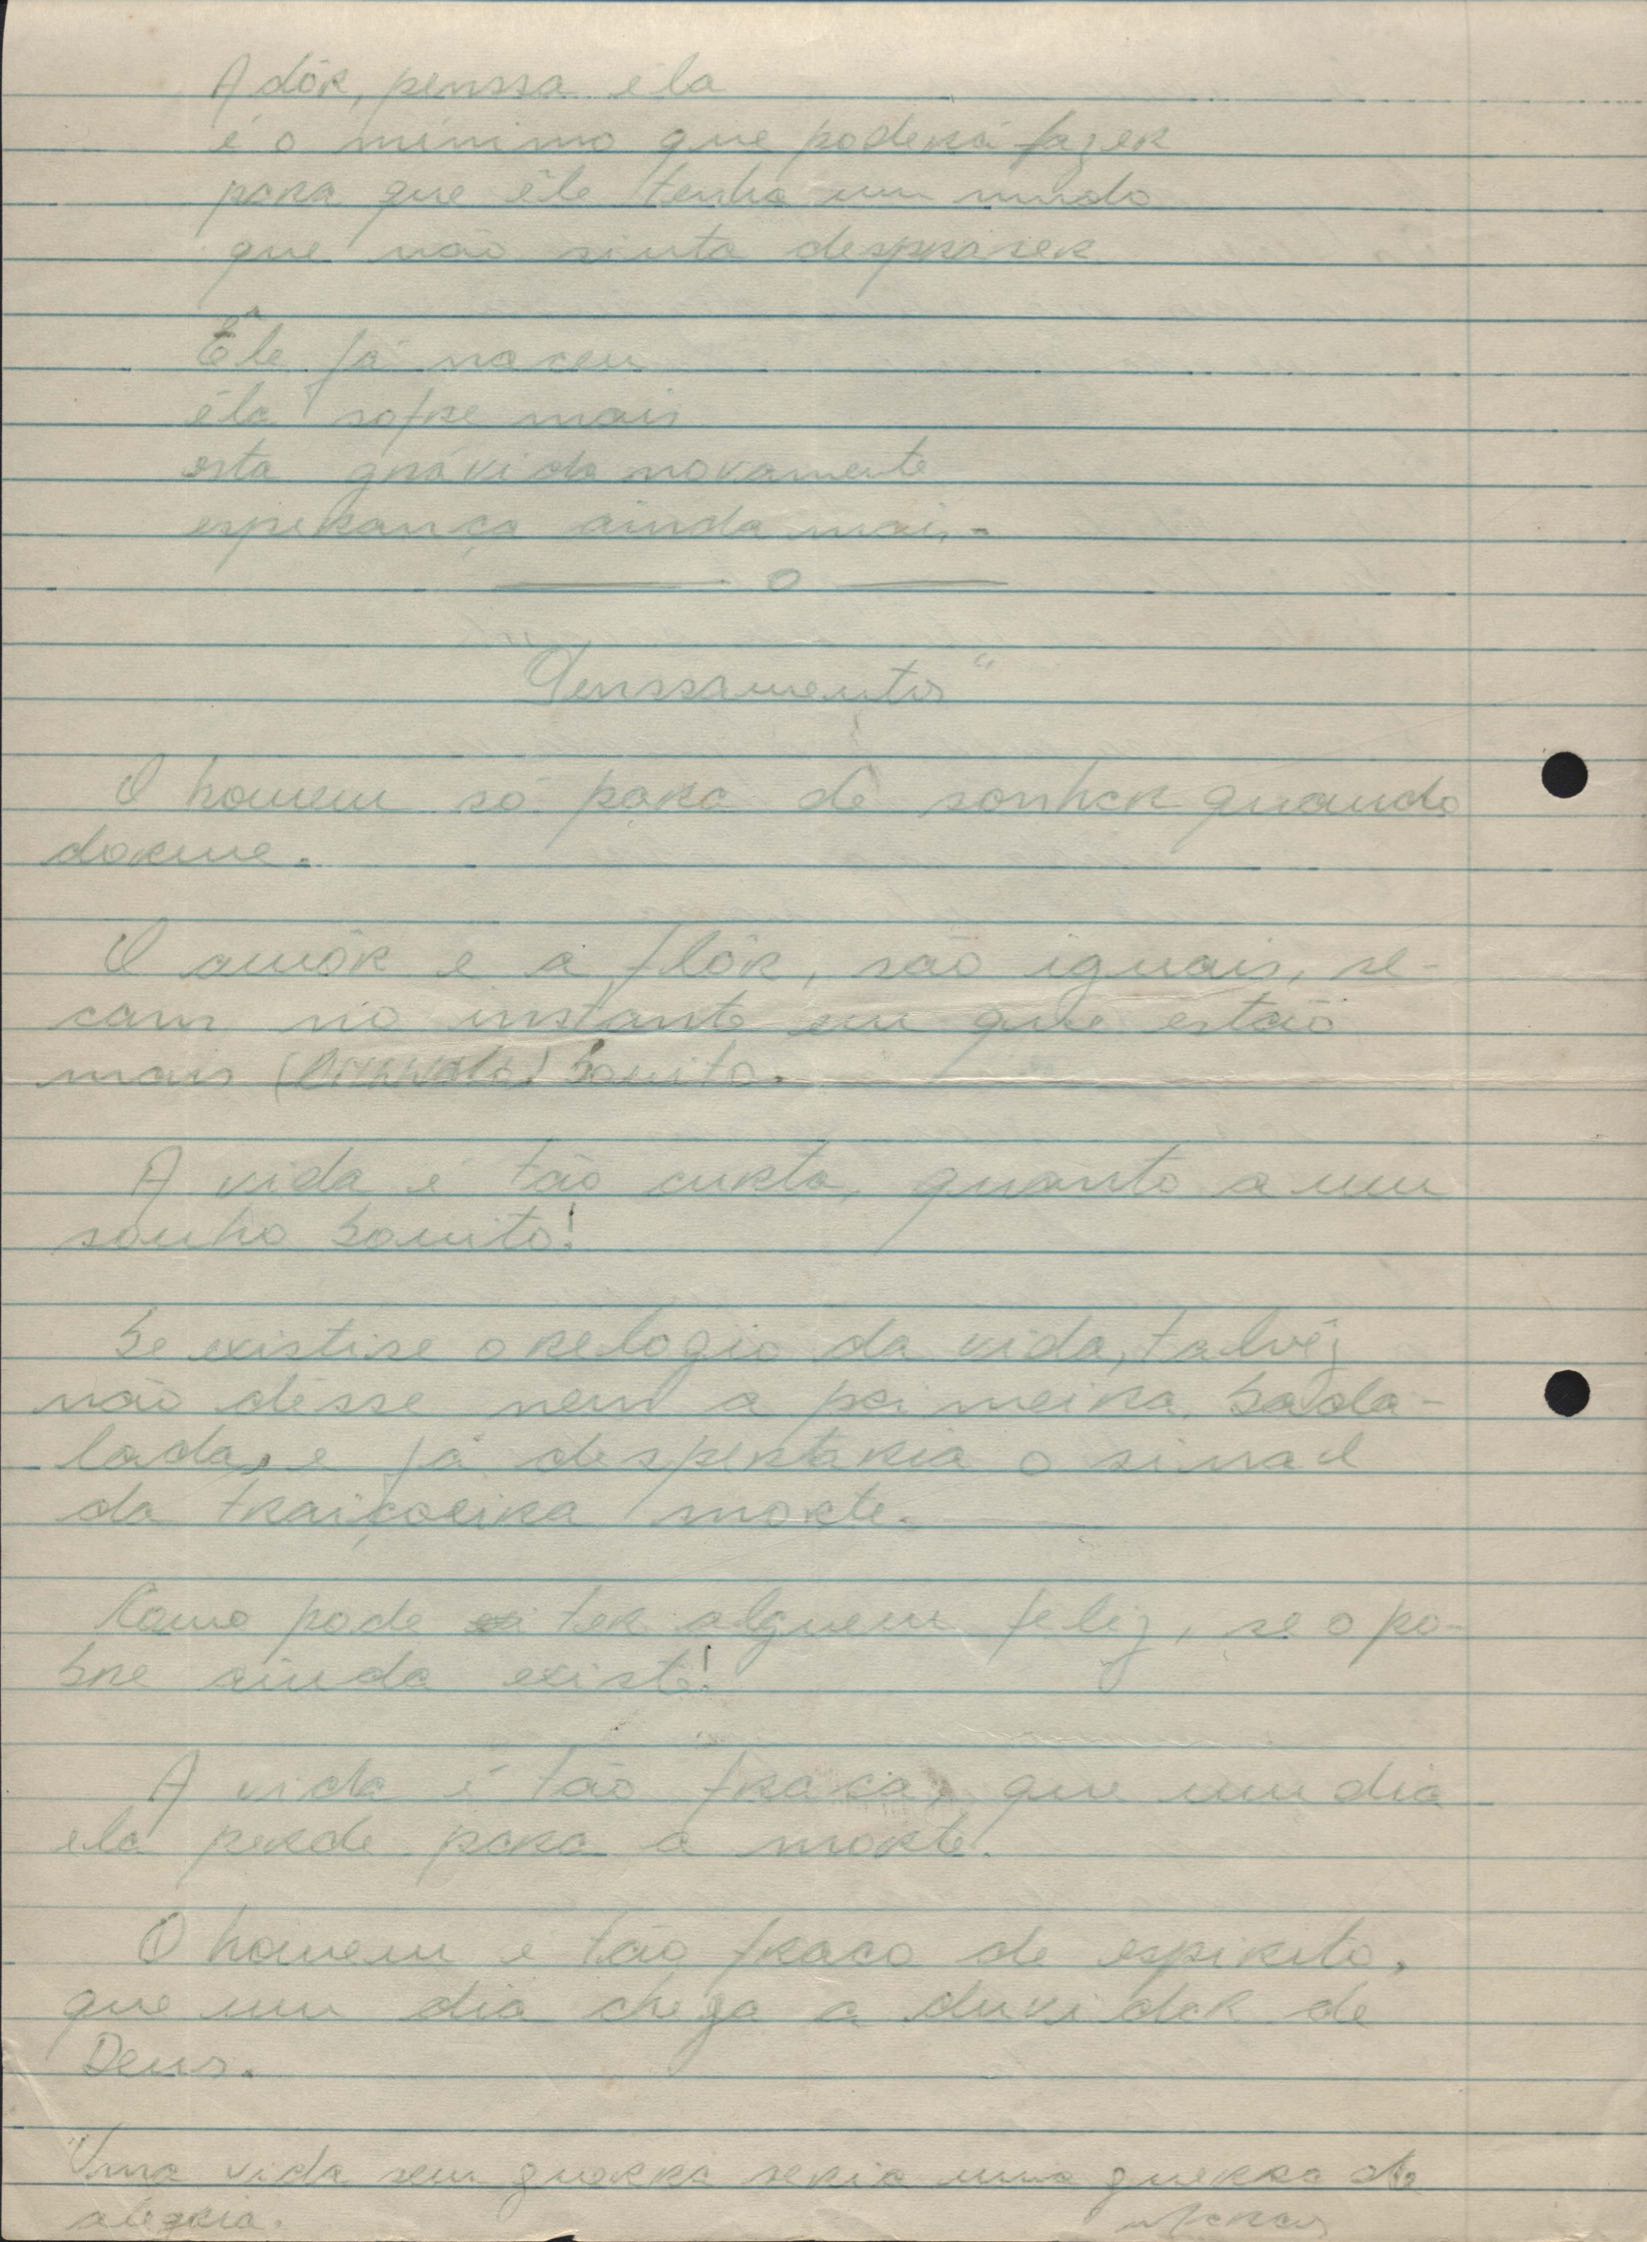 A dôr, penssa éla
é o minimo que poderá fazer
para que êle tenha um mundo
que não sinta despraser

Êle já naceu
éla sofre mais
esta grávida novamente
esperança ainda mais.
o
"Penssamentos"
O homem só para de sonhar quando
dorme.
O amôr e a flôr, são iguais, se-
cam no instante em que estão
mais bonito.
A vida é tão curta, quanto a um
sonho bonito!
Se existise o relogio da vida, talvêz
não désse nem a primeira bada-
lada, e já despertaria o sinal
da traiçoeira morte.
Como pode ter alguem feliz, se o po-
bre ainda existe!
A vida é tão fraca, que um dia
ela perde para a morte.
O homem é tão fraco de espirito,
que um dia chega a duvidar de
Deus.
"Uma vida sem guerra seria uma guerra de
alegria.